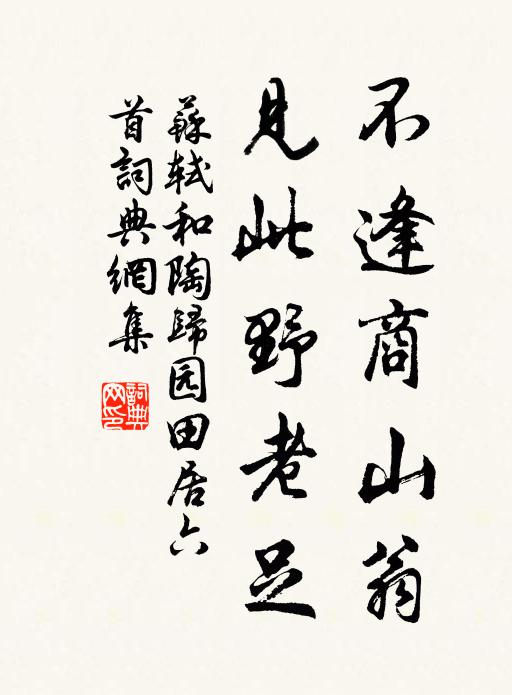 不逢商山翁
見此野老足
蘇軾和陶歸园田居六
首詞典網集
詞典
网印